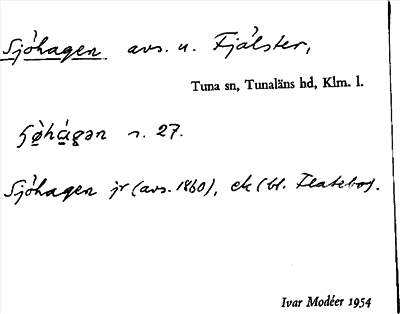 Sjöhagen avs. u. Fjälster,
Tuna sn, Tunaläns hd, Klm. l.
r. 27.
Sjöhagen jr (avs. 1860), ek (bl. Flatebo).
Ivar Modéer 1954